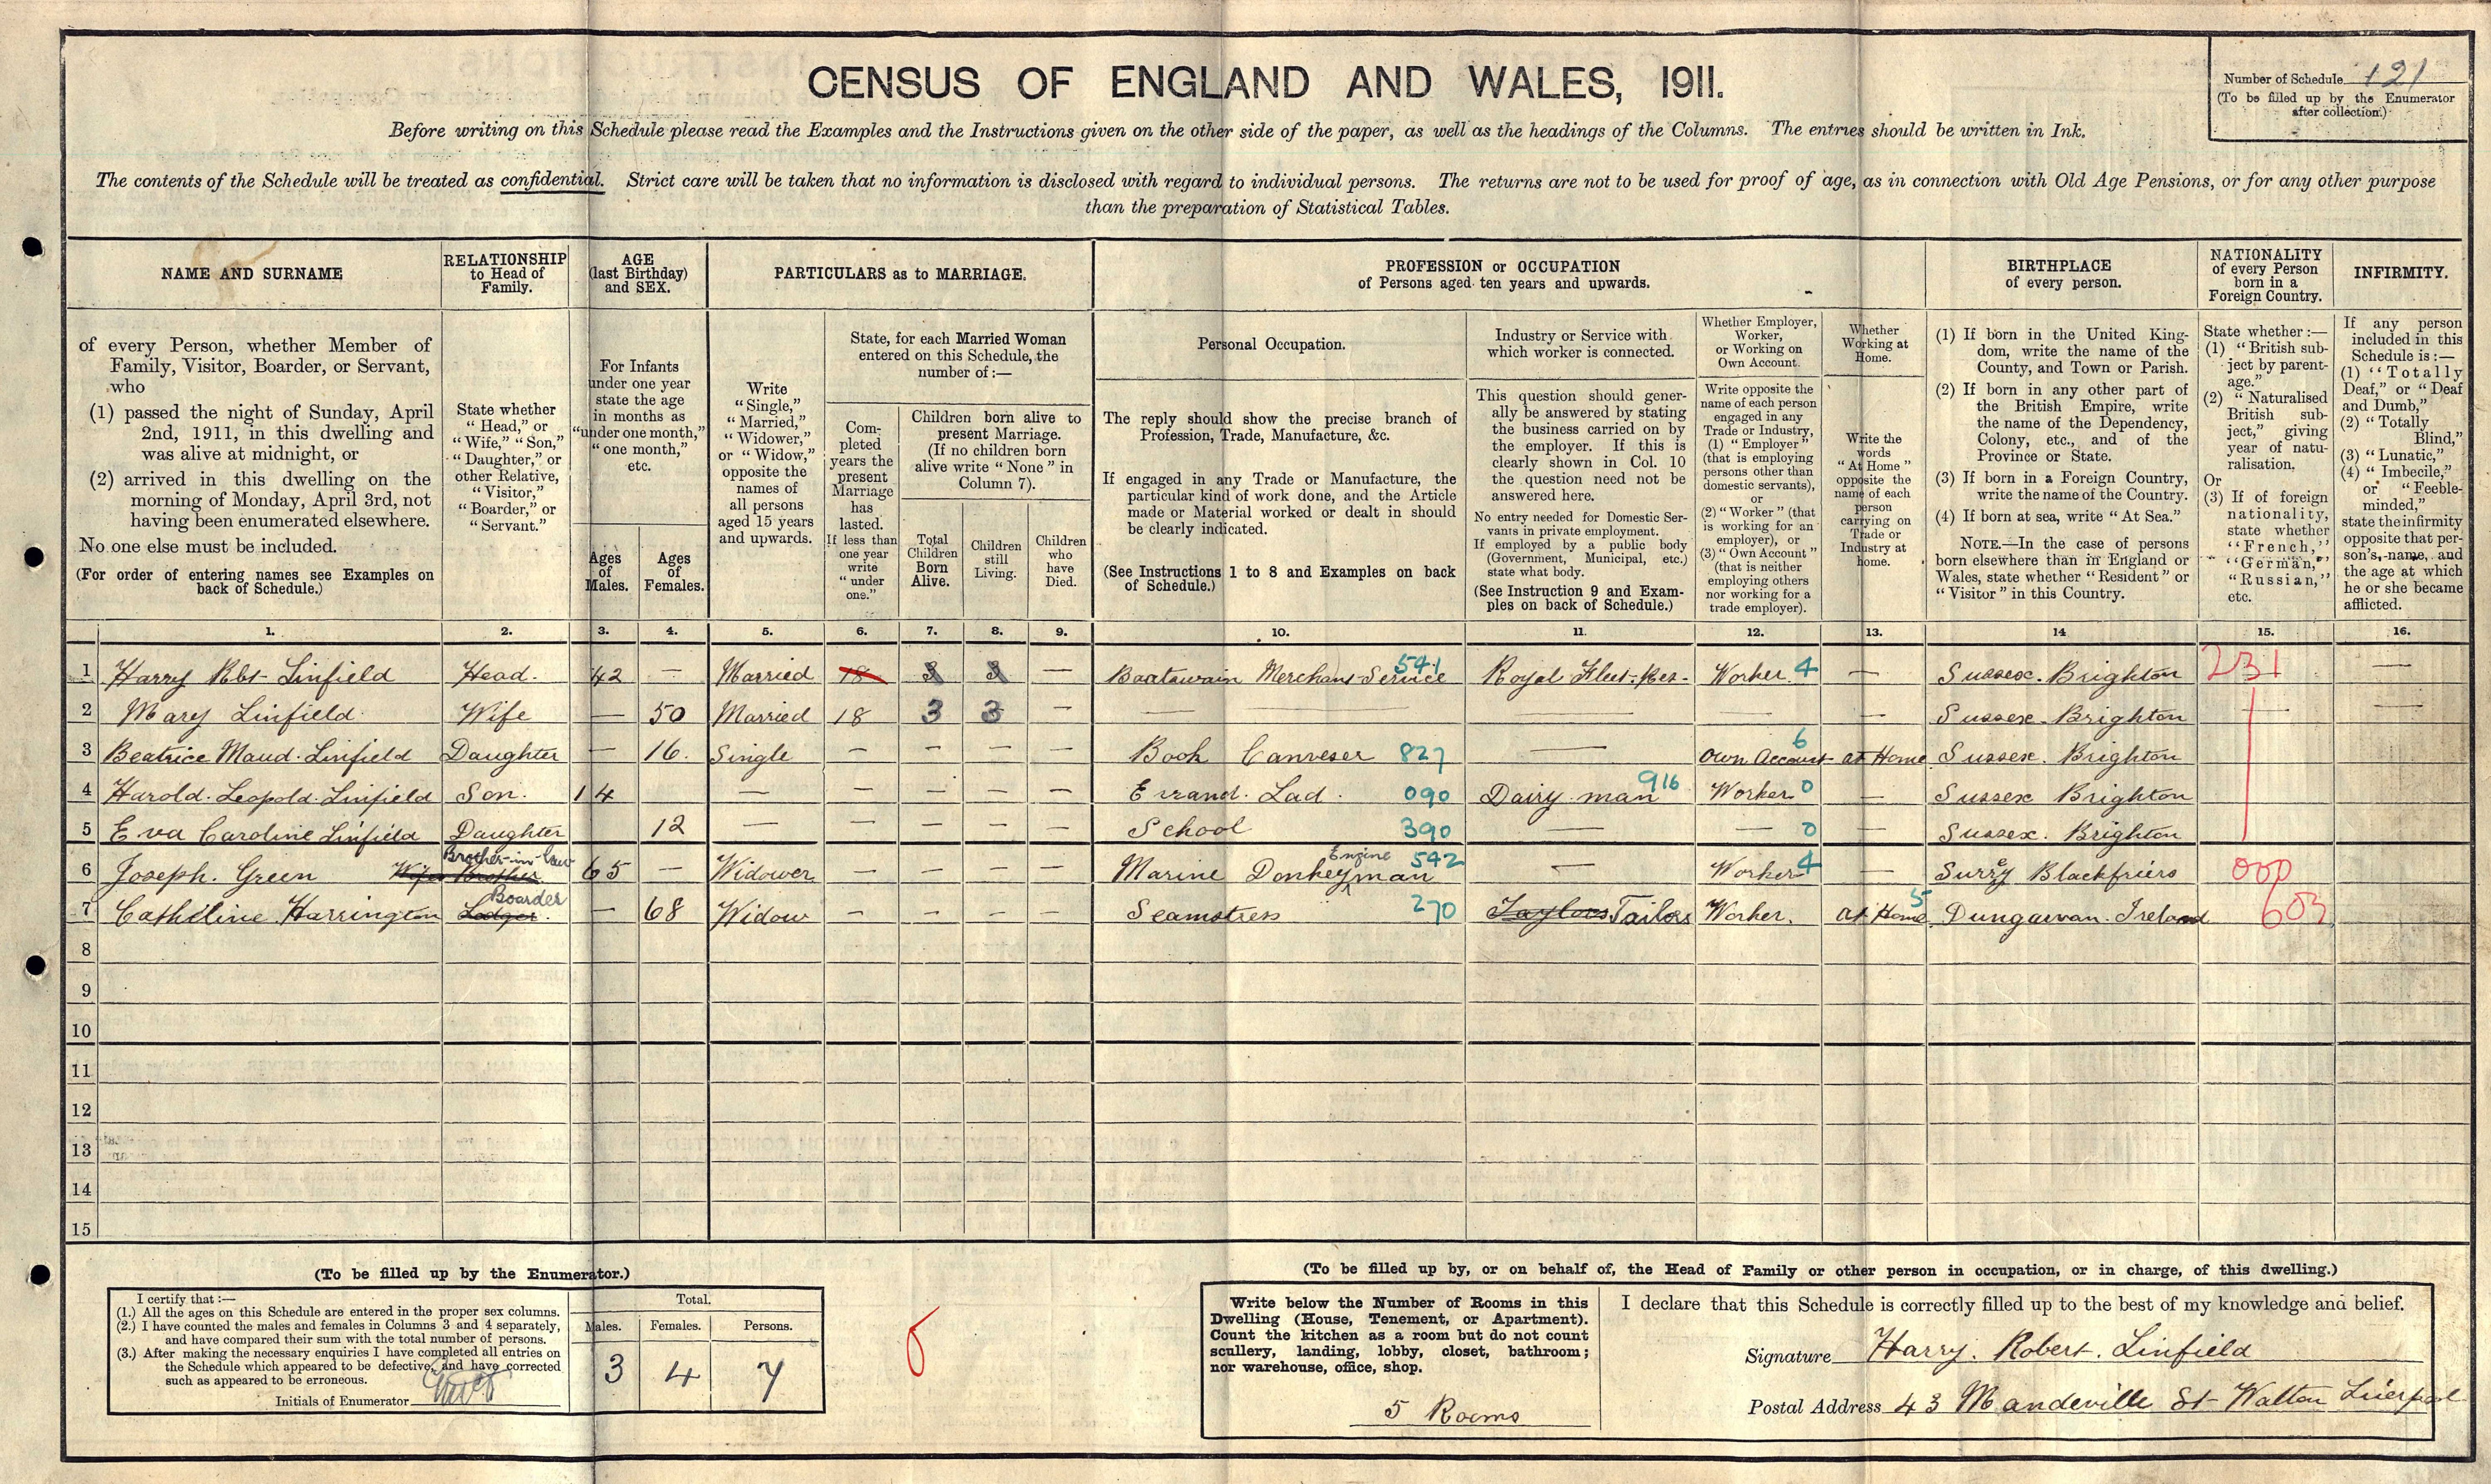 CENSUS OF ENGLAND AND WALES, 1911.
Number of Schedule 121
(To be filled up by the Enumerator
after collection.)
Before writing on this Schedule please read the Examples and the Instructions given on the other side of the paper, as well as the headings of the Columns. The entries should be written in Ink.
The contents of the Schedule will be treated as confidential. Strict care will be taken that no information is disclosed with regard to individual persons. The returns are not to be used for proof of age, as in connection with Old Age Pensions, or for any other purpose
than the preparation of Statistical Tables.
NAME AND SURNAME
of every Person, whether Member of
Family, Visitor, Boarder, or Servant,
who
(1) passed the night of Sunday, April
2nd, 1911, in this dwelling and
was alive at midnight, or
(2) arrived in this dwelling on the
morning of Monday, April 3rd, not
having been enumerated elsewhere.
No one else must be included.
(For order of entering names see Examples on
back of Schedule.)
RELATIONSHIP
to Head of
Family.
State whether
"Head," or
"Wife," "Son,"
"Daughter," or
other Relative,
"Visitor,"
"Boarder," or
"Servant."
AGE
(last Birthday)
and SEX.
For Infants
under one year
state the age
in months as
"under one month,"
"one month,"
etc.
Ages
of
Males.
Ages
of
Females.
PARTICULARS as to MARRIAGE.
Write
"Single,"
"Married,"
"Widower,"
or "Widow,"
opposite the
names of
all persons
aged 15 years
and upwards.
State, for each Married Woman
entered on this Schedule, the
number of:—
Com-
pleted
years the
present
Marriage
has
lasted.
If less than
one year
write
"under
one."
Children born alive to
present Marriage.
(If no children born
alive write "None" in
Column 7).
Total
Children
Born
Alive.
Children
still
Living.
Children
who
have
Died.
PROFESSION or OCCUPATION
of Persons aged ten years and upwards.
Personal Occupation.
The reply should show the precise branch of
Profession, Trade, Manufacture, &c.
If engaged in any Trade or Manufacture, the
particular kind of work done, and the Article
made or Material worked or dealt in should
be clearly indicated.
(See Instructions 1 to 8 and Examples on back
of Schedule.)
Industry or Service with
which worker is connected.
This question should gener-
ally be answered by stating
the business carried on by
the employer. If this is
clearly shown in Col. 10
the question need not be
answered here.
No entry needed for Domestic Ser-
vants in private employment.
If employed by a public body
(Government, Municipal, etc.)
state what body.
(See Instruction 9 and Exam-
ples on back of Schedule.)
Whether Employer,
Worker,
or Working on
Own Account.
Write opposite the
name of each person
engaged in any
Trade or Industry,
(1) "Employer"
(that is employing
persons other than
domestic servants),
or
(2) "Worker" (that
is working for an
employer), or
(3) "Own Account"
(that is neither
employing others
nor working for a
trade employer).
Whether
Working at
Home.
Write the
words
"At Home"
opposite the
name of each
person
carrying on
Trade or
Industry at
home.
BIRTHPLACE
of every person.
(1) If born in the United King-
dom, write the name of the
County, and Town or Parish.
(2) If born in any other part of
the British Empire, write
the name of the Dependency,
Colony, etc., and of the
Province or State.
(3) If born in a Foreign Country,
write the name of the Country.
(4) If born at sea, write "At Sea."
NOTE.—In the case of persons
born elsewhere than in England or
Wales, state whether "Resident" or
"Visitor" in this Country.
NATIONALITY
of every Person
born in a
Foreign Country.
State whether:—
(1) "British sub-
ject by parent-
age."
(2) "Naturalised
British sub-
ject," giving
year of natu-
ralisation.
Or
(3) If of foreign
nationality,
state whether
"French,"
"German,"
"Russian,"
etc.
INFIRMITY.
If any person
included in this
Schedule is:—
(1) "Totally
Deaf," or "Deaf
and Dumb,"
(2) "Totally
Blind,"
(3) "Lunatic,"
(4) "Imbecile,"
or "Feeble-
minded,"
state the infirmity
opposite that per-
son's name, and
the age at which
he or she became
afflicted.
1. 2. 3. 4. 5. 6. 7. 8. 9. 10. 11. 12. 13. 14 15. 16.
1 Harry Rbt Linfield Head. 42 — Married 18 3 3 — Boatswain Merchant Service 541 Royal Fleet. Res. Worker. 4 — Sussex. Brighton 231 —
2 Mary Linfield Wife — 50 Married 18 3 3 — — — — — Sussex Brighton — —
3 Beatrice Maud. Linfield Daughter — 16. Single — — — — Book Canveser 827 — Own Account 6 at Home Sussex. Brighton
4 Harold. Leopold. Linfield Son. 14 — — — — — Errand. Lad. 090 Dairy man 916 Worker 0 — Sussex Brighton
5 Eva Caroline Linfield Daughter 12 — — — — — School 390 — — 0 — Sussex. Brighton
6 Joseph. Green Wifes Brother Brother-in-law 65 — Widower — — — — Marine Donkey Engine man 542 — Worker 4 — Surrey Blackfriers 000
7 Catheline Harrington Lodger. Boarder — 68 Widow — — — — Seamstress 270 Taylors Tailors Worker. at Home 5 Dungarvan. Ireland 603
8
9
10
11
12
13
14
15
(To be filled up by the Enumerator.)
I certify that:—
(1.) All the ages on this Schedule are entered in the proper sex columns.
(2.) I have counted the males and females in Columns 3 and 4 separately,
and have compared their sum with the total number of persons.
(3.) After making the necessary enquiries I have completed all entries on
the Schedule which appeared to be defective, and have corrected
such as appeared to be erroneous.
Initials of Enumerator
Total.
Males. Females. Persons.
3 4 7
(To be filled up by, or on behalf of, the Head of Family or other person in occupation, or in charge, of this dwelling.)
Write below the Number of Rooms in this
Dwelling (House, Tenement, or Apartment).
Count the kitchen as a room but do not count
scullery, landing, lobby, closet, bathroom;
nor warehouse, office, shop.
5 Rooms
I declare that this Schedule is correctly filled up to the best of my knowledge and belief.
Signature Harry. Robert. Linfield
Postal Address 43 Mandeville St Walton Liverpool